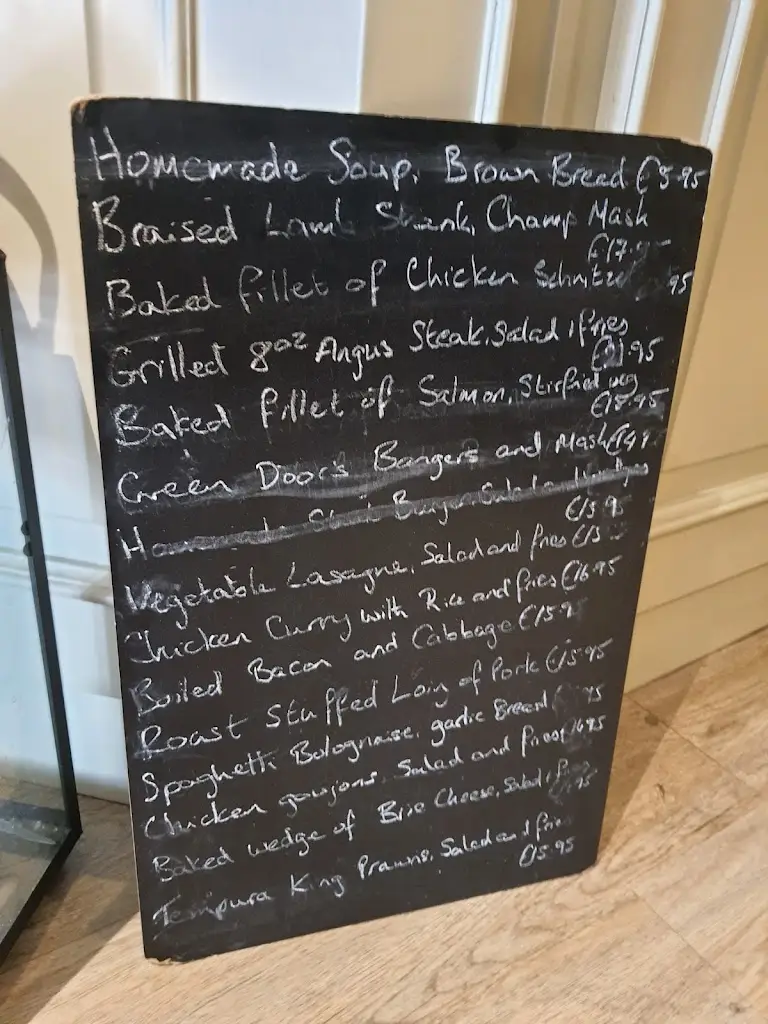 Homemade Soup, Brown Bread €5.95
Braised Lamb Shank, Champ Mash
€17.95
Baked fillet of Chicken Schnitzel 95
Grilled 8oz Angus Steak, Salad & fries
€21.95
Baked fillet of Salmon, Stirfried veg
€18.95
Green Door's Bangers and Mash
€15.95
Vegetable Lasagne, Salad and fries
Chicken Curry with Rice and fries €16.95
Boiled Bacon and Cabbage €15.95
Roast Stuffed Loin of Pork €15.95
Spaghetti Bolognaise, garlic Bread 95
Chicken goujons, Salad and fries €16.95
Baked wedge of Brie Cheese, Salad & fries
Tempura King Prawns, Salad and fries
€15.95